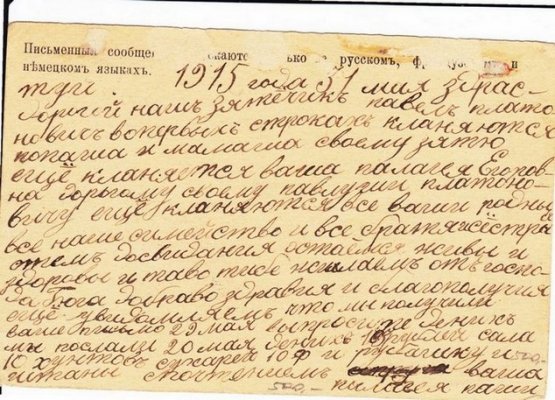 Письменныя сообще скаютс олько русскомъ, фр и
нѣмецкомъ языкахъ.
1915 года 31 мия здрас
туи
дорогой нашъ зятечикъ павелъ плато
новичъ вопервыхъ строкахъ кланяются
попаша и мамаша своему зятю
ещё кланяется ваша палагея Егоров
на дорогому своему павлуши платоно
вичу ещё кланяются все ваши родныя
все наше семейство и все братя и сестры
отемъ досвидания остаёмся живы и
здоровы и таво тибе желаемъ отъ госпо
да бога добраво здравия и благополучия
еще уведомляемъ что мы получили
ваше письмо 29 мая выпросите деникъ
мы послали 20 мая деникъ рублей сала
10 хунтовъ сухарей 10 ф и рубашку и
штаны спочтениемъ ваша
палагея